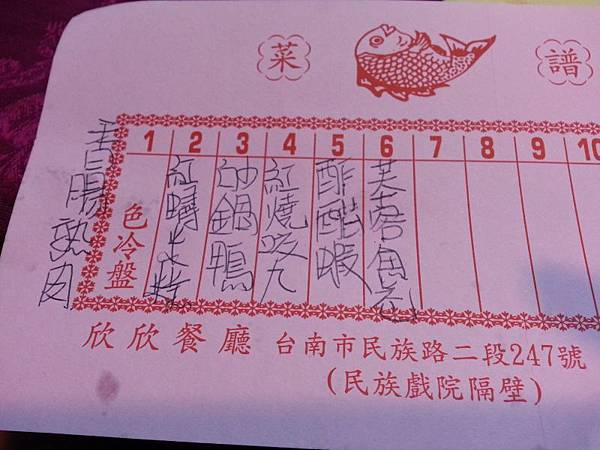 菜 譜
香腸熟肉
1 2 3 4 5 6 7 8 9 10
色冷盤
紅蟳米糕
砂鍋鴨
紅燒
醋蝦
芙蓉魚
欣欣餐廳 台南市民族路二段247號
(民族戲院隔壁)